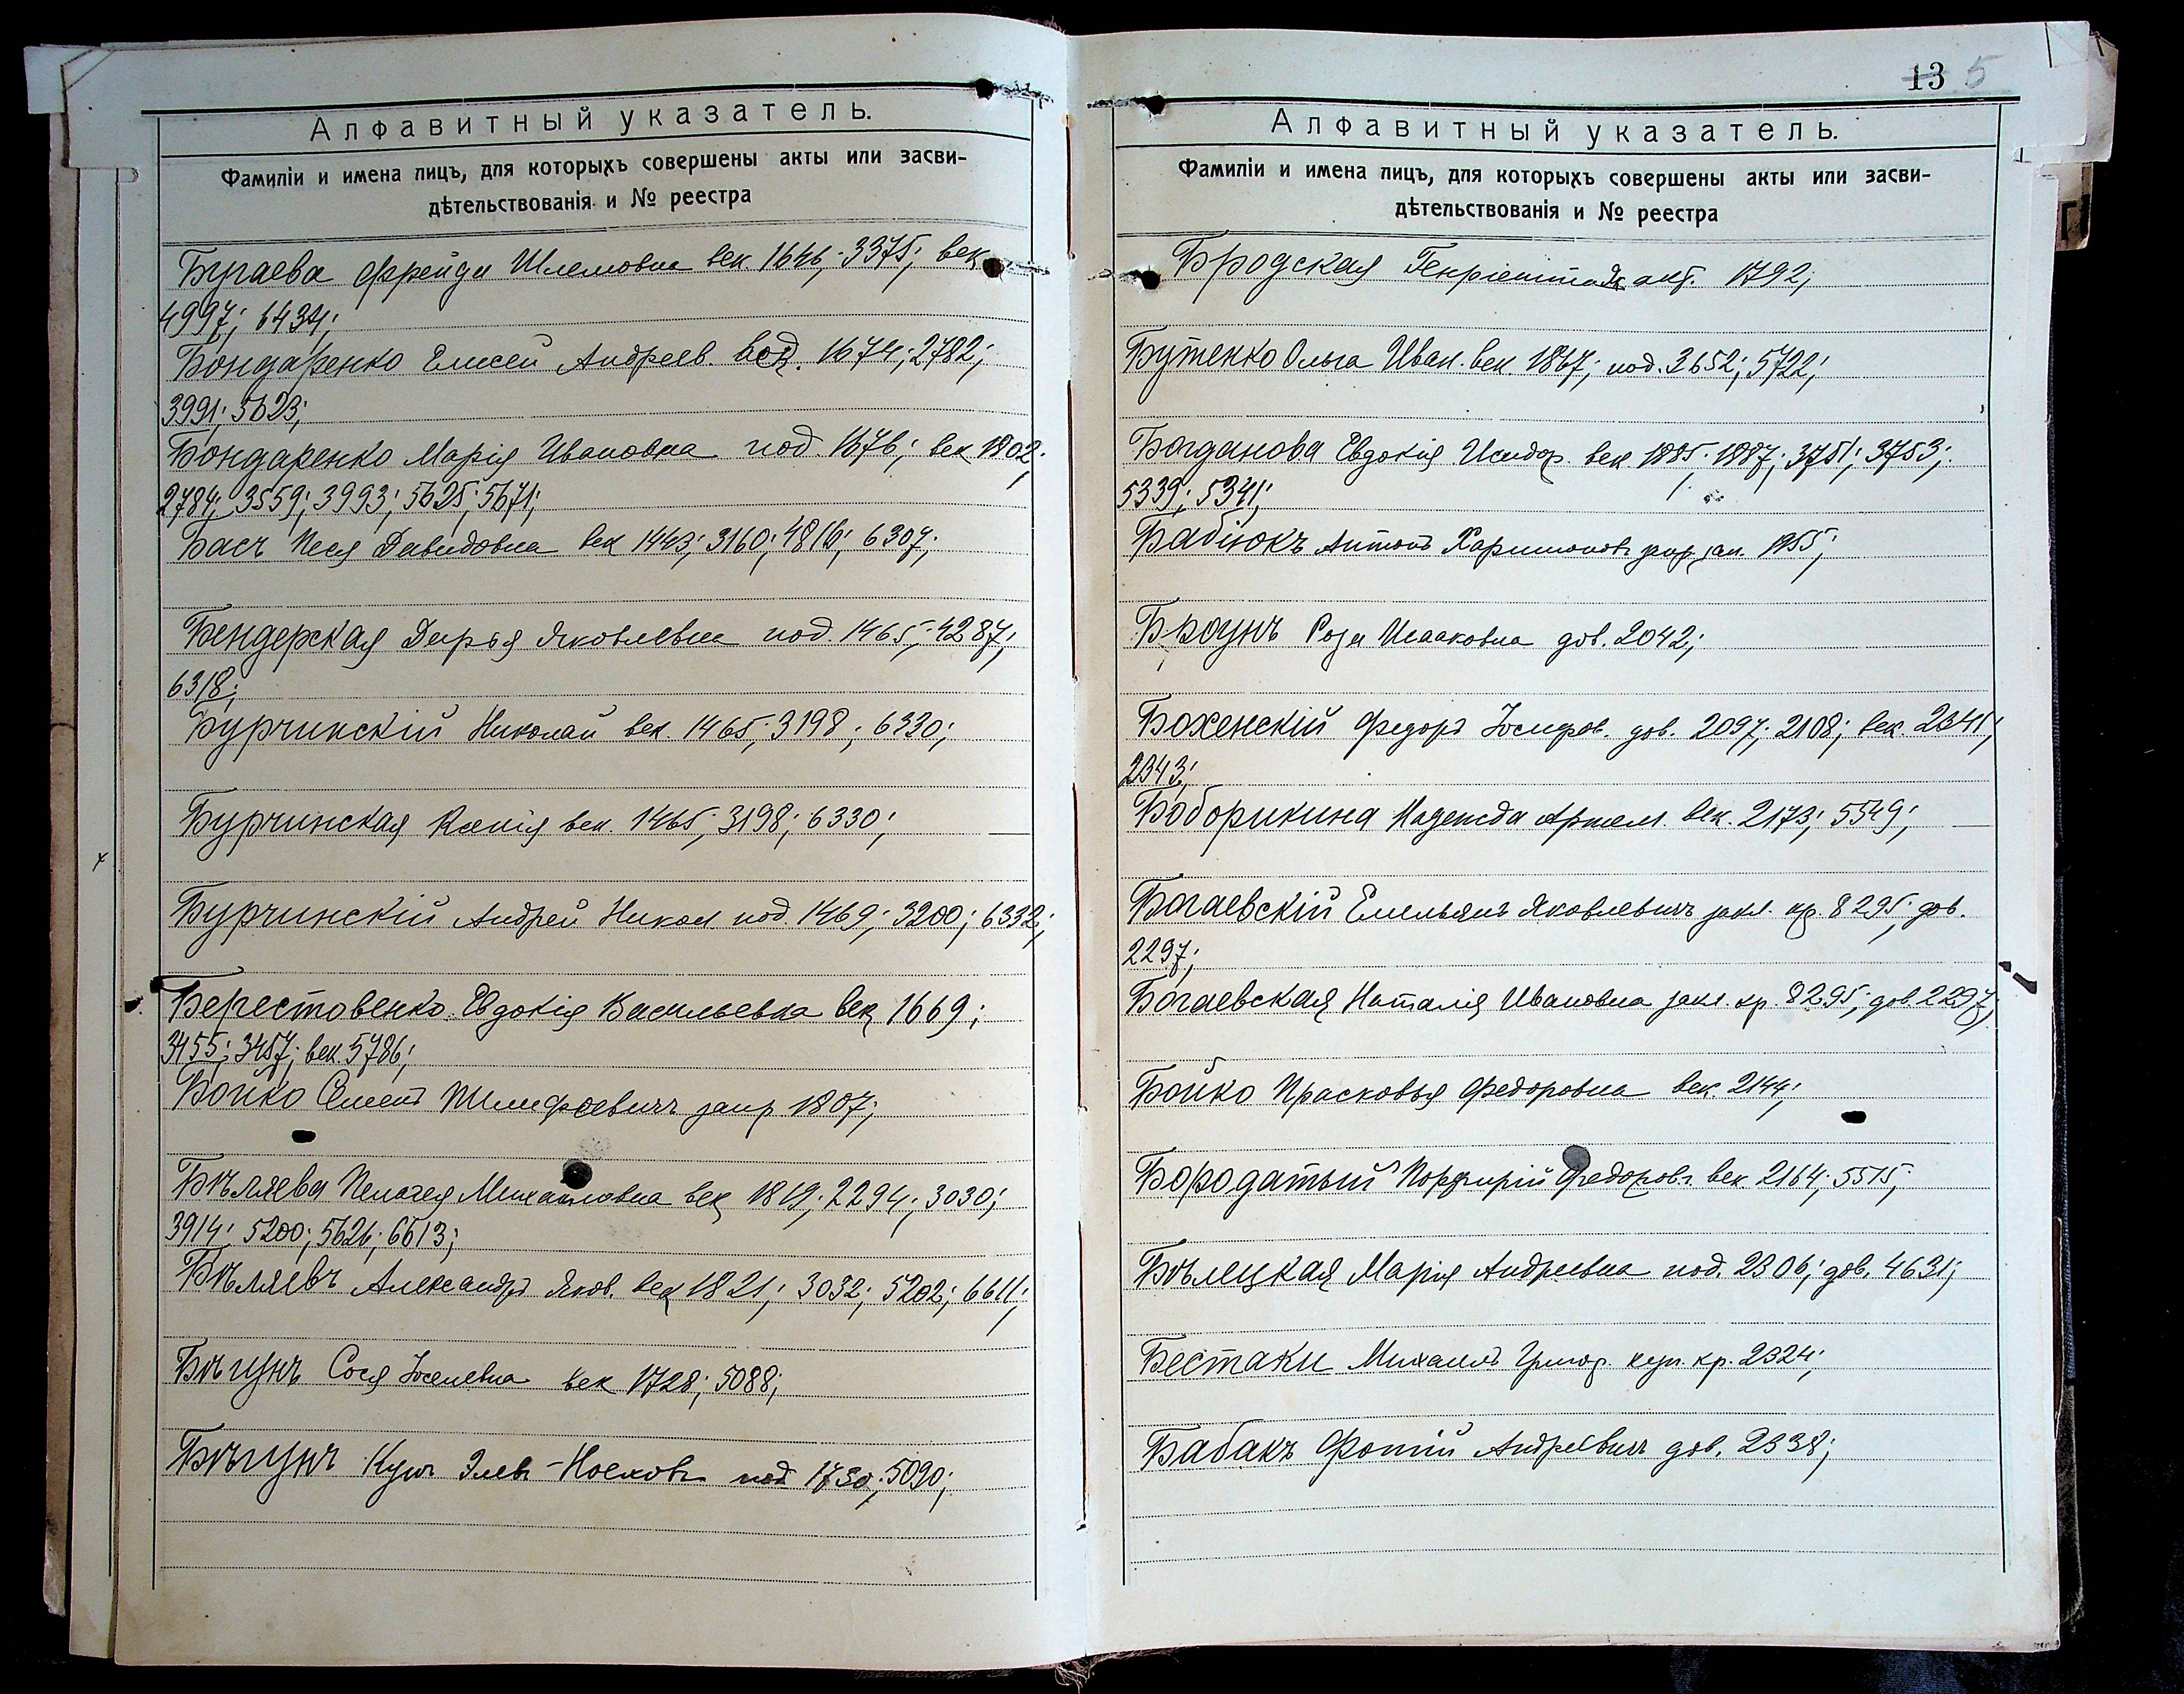 Алфавитный указатель.
Фамиліи и имена лицъ, для которыхъ совершены акты или засви-
дѣтельствованія и № реестра
Бугаева Фрейда Шлемовна век. 1646; 3375; век
4997; 6434;
Бондаренко Елисей Андреев. 1674; 2782;
3991; 5623;
Бондаренко Марія Ивановна под. 1676; век 1802;
2784; 3559; 3993; 5625; 5671;
Басъ Песя Давидовна век 1443; 3160; 4816; 6307;
Бендерская Дарья Яковлевна под. 1465; 4287;
6318;
Бурчинскій Николай век. 1465; 3198; 6330;
Бурчинская Ксенія век. 1465; 3198; 6330;
Бурчинскій Андрей Никол под. 1469; 3200; 6332;
Берестовенко Евдокія Васильевна век 1669;
3455; 3457; век. 5786;
Бойко Семенъ 1807;
Бѣляева Пелагея Михайловна век 1819; 2294; 3030;
3914; 5200; 5626; 6613;
Бѣляевъ Александръ Яков. век 1821; 3032; 5202; 6611;
Бѣгунъ Сося Хоселевна век 1728; 5088;
Бѣгунъ под 1730; 5090;
13 5
Алфавитный указатель.
Фамиліи и имена лицъ, для которыхъ совершены акты или засви-
дѣтельствованія и № реестра
Бродская Генріетта акт. 1792;
Бутенко Ольга Иван. век. 1867; под. 3652; 5722;
Богданова Евдокія Исидор. век 1885; 1887; 3751; 3753;
5339; 5341;
Бабіюкъ Антонъ Харитоновъ 1955;
Броунъ Роза Исааковна дов. 2042;
Боженскій Федоръ Іосифов. дов. 2097; 2108; век. 2341;
2343;
Боборикина Надежда Артем. век. 2173; 5549;
Богаевскій Емельянъ Яковлевичъ закл. кр. 8295; дов.
2297;
Богаевская Наталія Ивановна закл. кр. 8295; дов. 2297;
Бойко Прасковья Федоровна век. 2144;
Бородатый Порфирій Федоровъ век 2164; 5515;
Бѣлецкая Марія Андреевна под. 2306; дов. 4631;
Бестаки Михаилъ Григор. куп. кр. 2324;
Бабакъ Фотій Андреевичъ дов. 2338;